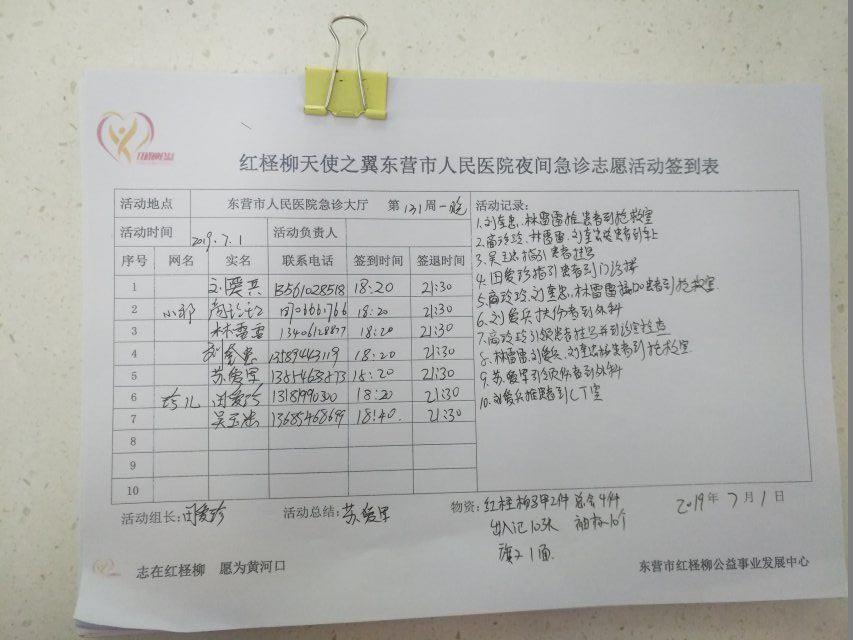 红柽柳天使之翼东营市人民医院夜间急诊志愿活动签到表
活动地点 东营市人民医院急诊大厅 第131周一晚 活动记录:
活动时间 2019.7.1 活动负责人
序号 网名 实名 联系电话 签到时间 签退时间
1 刘爱兵 13561028518 18:20 21:30
2 小郑 18:20 21:30
3 林雷雷 18:20 21:30
4 刘奎忠 13589443119 18:20 21:30
5 苏爱军 21:30
6 珍儿 闵爱珍 13181990300 18:20 21:30
7 吴玉忠 13685468699 18:40. 21:30
8
9
10
1.刘奎忠、林雷雷推患者到抢救室
2.高玲玲、林雷雷、刘奎忠 患者到车上
3.吴玉忠指引患者挂号
4.闵爱珍指引患者到门诊楼
5.高玲玲、刘奎忠、林雷雷 患者到抢救室
6.刘爱兵扶伤者到外科
7.高玲玲引领患者挂号并到诊室检查
8.林雷雷、刘爱兵、刘奎忠 患者到抢救室
9.苏爱军引领伤者到外科
10.刘爱兵推患者到CT室
活动组长:闵爱珍 活动总结:苏爱军 物资:红柽柳马甲2件 总会4件 2019年7月1日
出入记10张 袖标10个
旗2 1面
志在红柽柳 愿为黄河口 东营市红柽柳公益事业发展中心